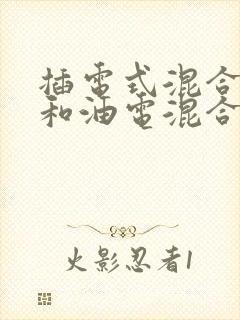 插電式混合
和油電混合
火影忍者1